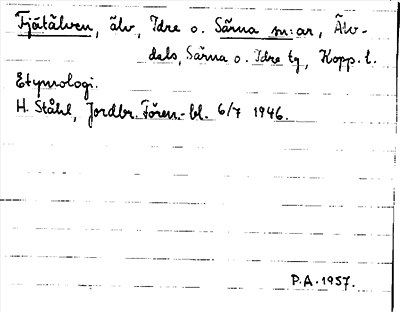 Fjätälven, älv, Idre o. Särna sn:ar, Älv-
dals, Särna o. Idre tg, Kopp. l.
Etymologi.
H. Ståhl, Jordbr. Fören.-bl. 6/7 1946.
P.A. 1957.